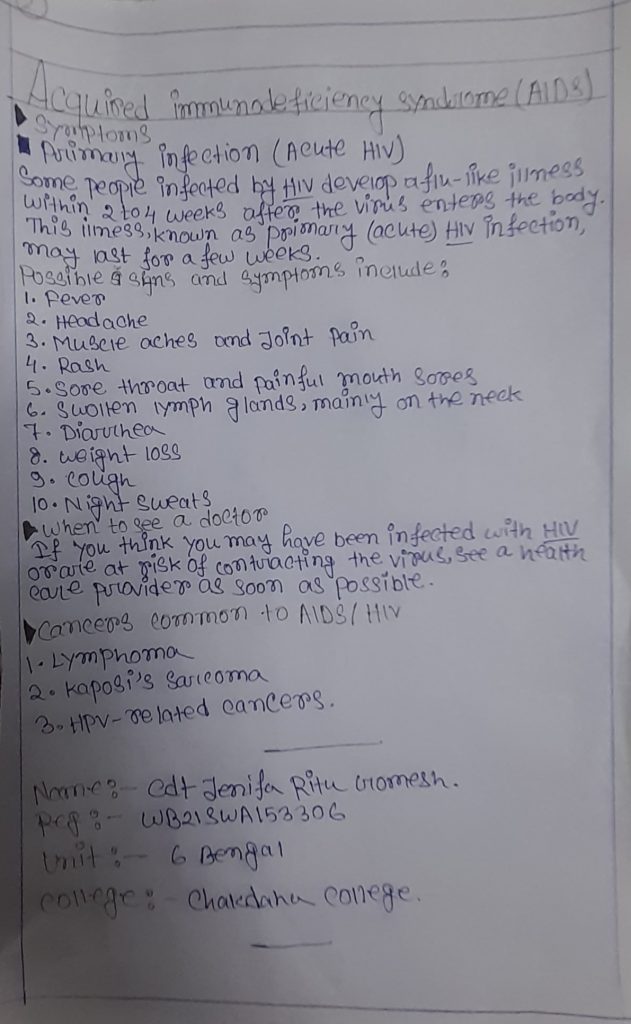 Acquired immunodeficiency syndrome (AIDS)
▶ Symptoms
■ Primary infection (Acute HIV)
Some people infected by HIV develop a flu-like illness
within 2 to 4 weeks after the virus enters the body.
This illness, known as primary (acute) HIV infection,
may last for a few weeks.
Possible signs and symptoms include:
1. Fever
2. Headache
3. Muscle aches and Joint Pain
4. Rash
5. Sore throat and painful mouth sores
6. Swollen lymph glands, mainly on the neck
7. Diarrhea
8. Weight loss
9. Cough
10. Night sweats
▶ When to see a doctor
If you think you may have been infected with HIV
or are at risk of contracting the virus, see a health
care provider as soon as possible.
▶ Cancers common to AIDS/HIV
1. Lymphoma
2. Kaposi's Sarcoma
3. HPV-related cancers.
Name:- Cdt Jenifa Ritu Gomesh.
Reg:- WB21SWA153306
Unit:- 6 Bengal
College:- Chakdaha College.